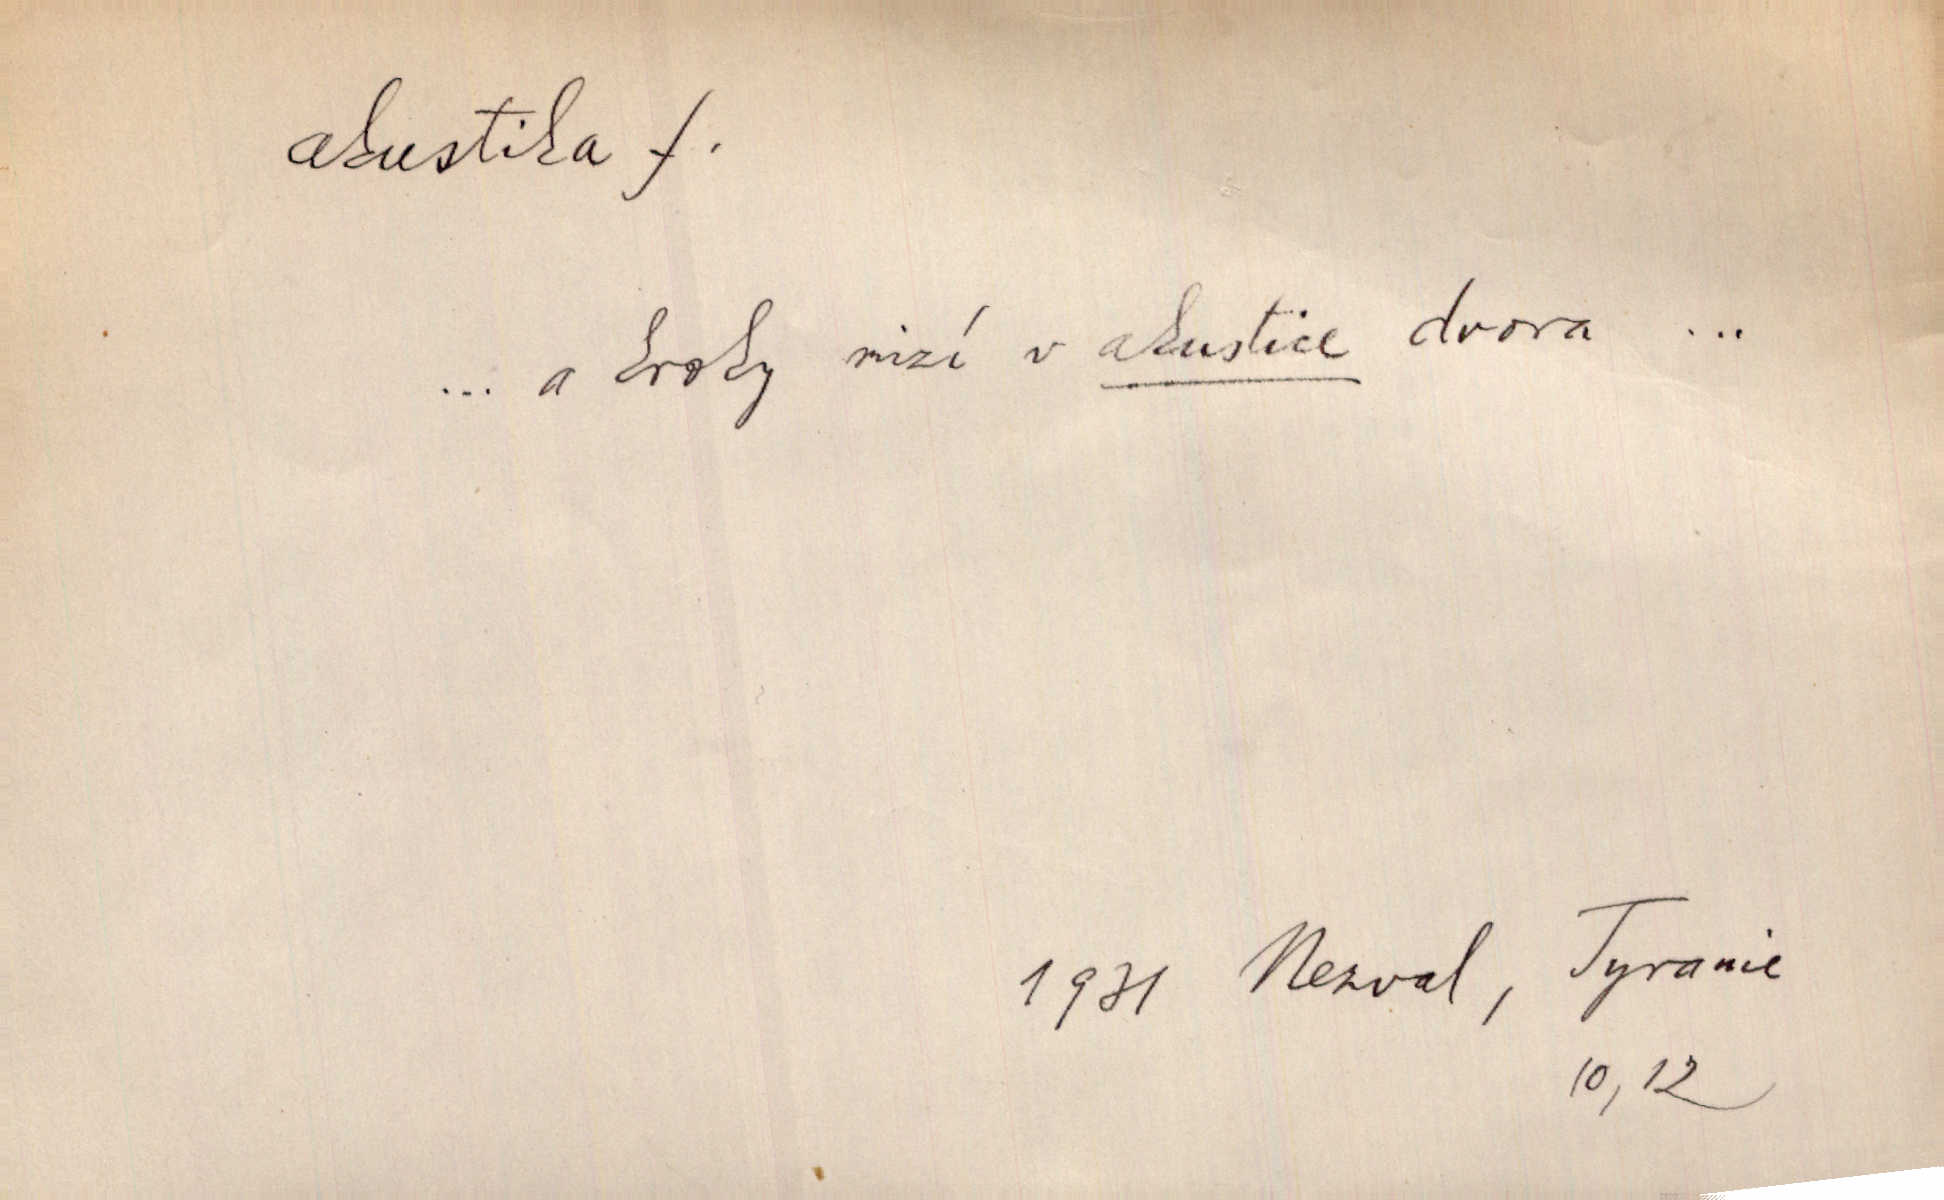 akustika f.
... a kroky mizí v akustice dvora ...
1931 Nezval, Tyranie
10, 12